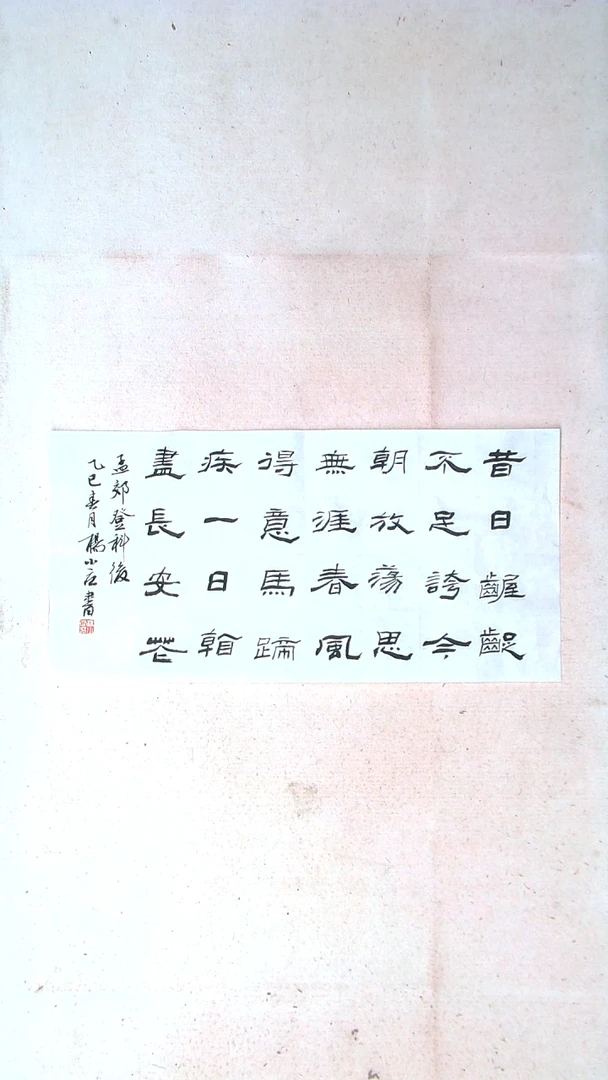 昔日齷齪
不足誇今
朝放蕩思
無涯春風
得意馬蹄
疾一日看
盡長安花
孟郊登科後
乙巳春月楊小書